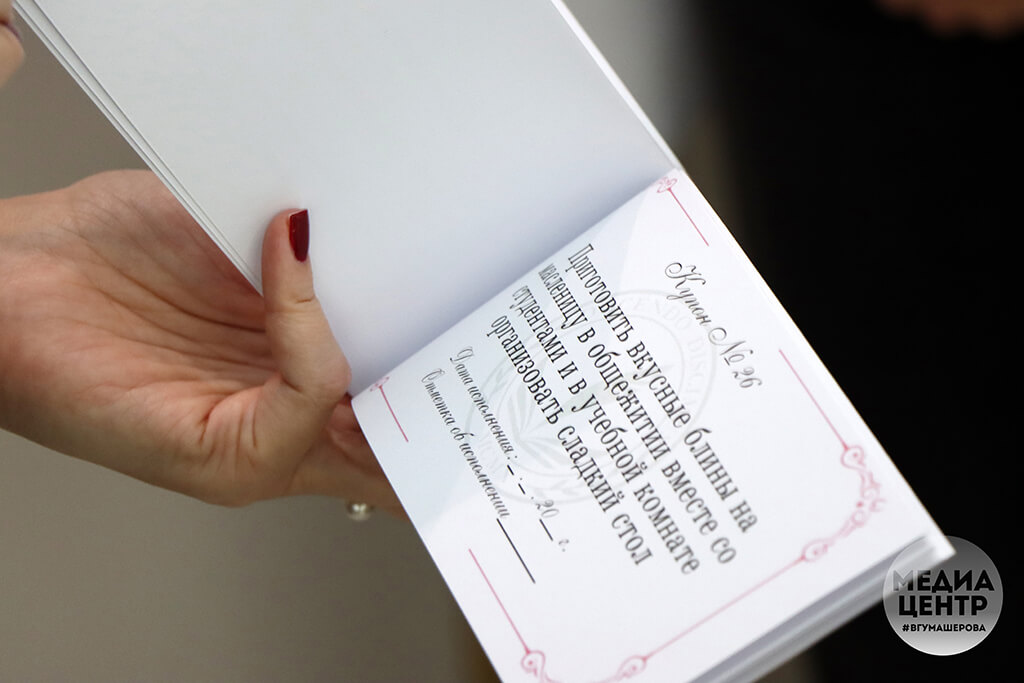 Купон № 26
Приготовить вкусные блины на
масленицу в общежитии вместе со
студентами и в учебной комнате
организовать сладкий стол
Дата исполнения: _._. 20_ г.
Отметка об исполнении____
МЕДИА
ЦЕНТР
#ВГУМАШЕРОВА